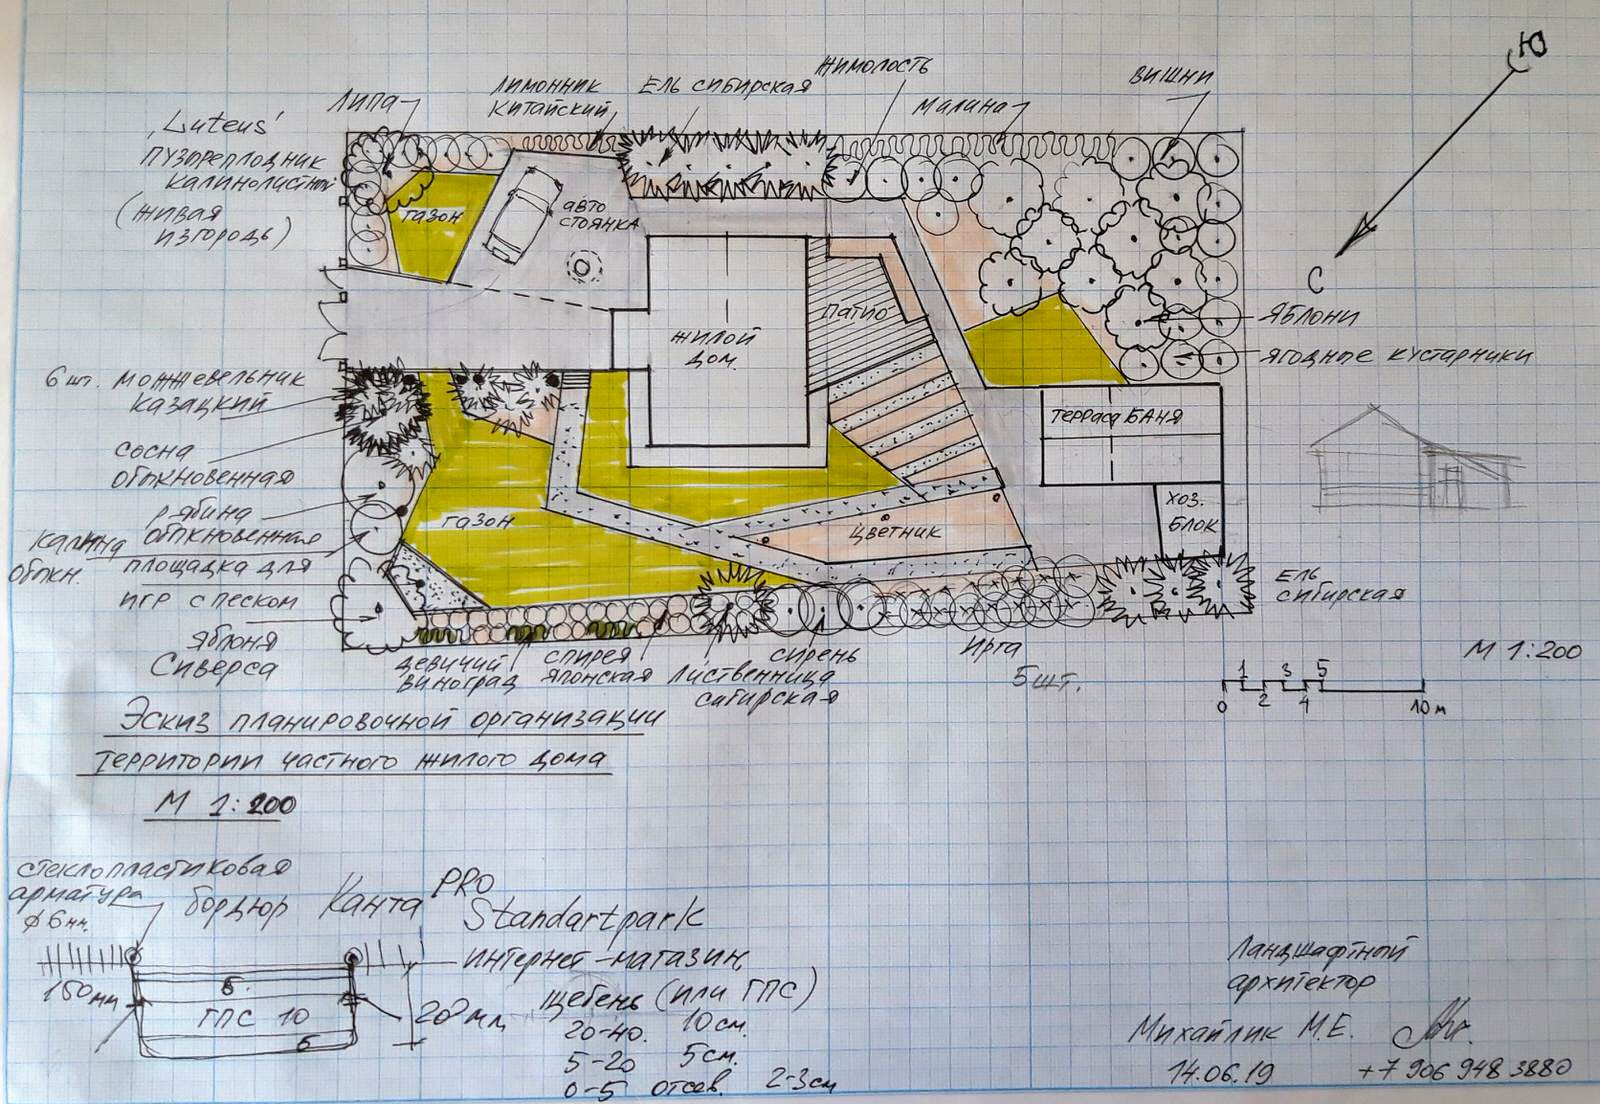 Ю
С
ЛИПА
ЛИМОННИК
КИТАЙСКИЙ
ЕЛЬ СИБИРСКАЯ
ЖИМОЛОСТЬ
МАЛИНА
ВИШНИ
'Luteus'
ПУЗЫРЕПЛОДНИК
КАЛИНОЛИСТНЫЙ
(ЖИВАЯ
ИЗГОРОДЬ)
ГАЗОН
АВТО
СТОЯНКА
ЖИЛОЙ
ДОМ.
ПАТИО
ЯБЛОНИ
ЯГОДНЫЕ КУСТАРНИКИ
6 шт. МОЖЖЕВЕЛЬНИК
КАЗАЦКИЙ
ТЕРРАСА БАНЯ
СОСНА
ОБЫКНОВЕННАЯ
ХОЗ.
БЛОК
РЯБИНА
ОБЫКНОВЕННАЯ
ГАЗОН
ЦВЕТНИК
КАЛИНА
ОБЫКН.
ПЛОЩАДКА ДЛЯ
ИГР С ПЕСКОМ
ЕЛЬ
СИБИРСКАЯ
ЯБЛОНЯ
СИВЕРСА
ДЕВИЧИЙ
ВИНОГРАД
СПИРЕЯ
ЯПОНСКАЯ
ЛИСТВЕННИЦА
СИБИРСКАЯ
СИРЕНЬ
ИРГА
5 шт.
М 1:200
1 3 5
0 2 4 10 м
Эскиз планировочной организации
территории частного жилого дома
М 1:200
СТЕКЛОПЛАСТИКОВАЯ
АРМАТУРА
Ø 6мм.
Бордюр Канта PRO
Standartpark
ИНТЕРНЕТ-МАГАЗИН,
150мм
5.
ГПС 10
5
200мм
Щебень (или ГПС)
20-40. 10 см.
5-20 5см.
0-5 отсев. 2-3см
Ландшафтный
архитектор
Михайлик М.Е.
14.06.19 +7 906 948 3880